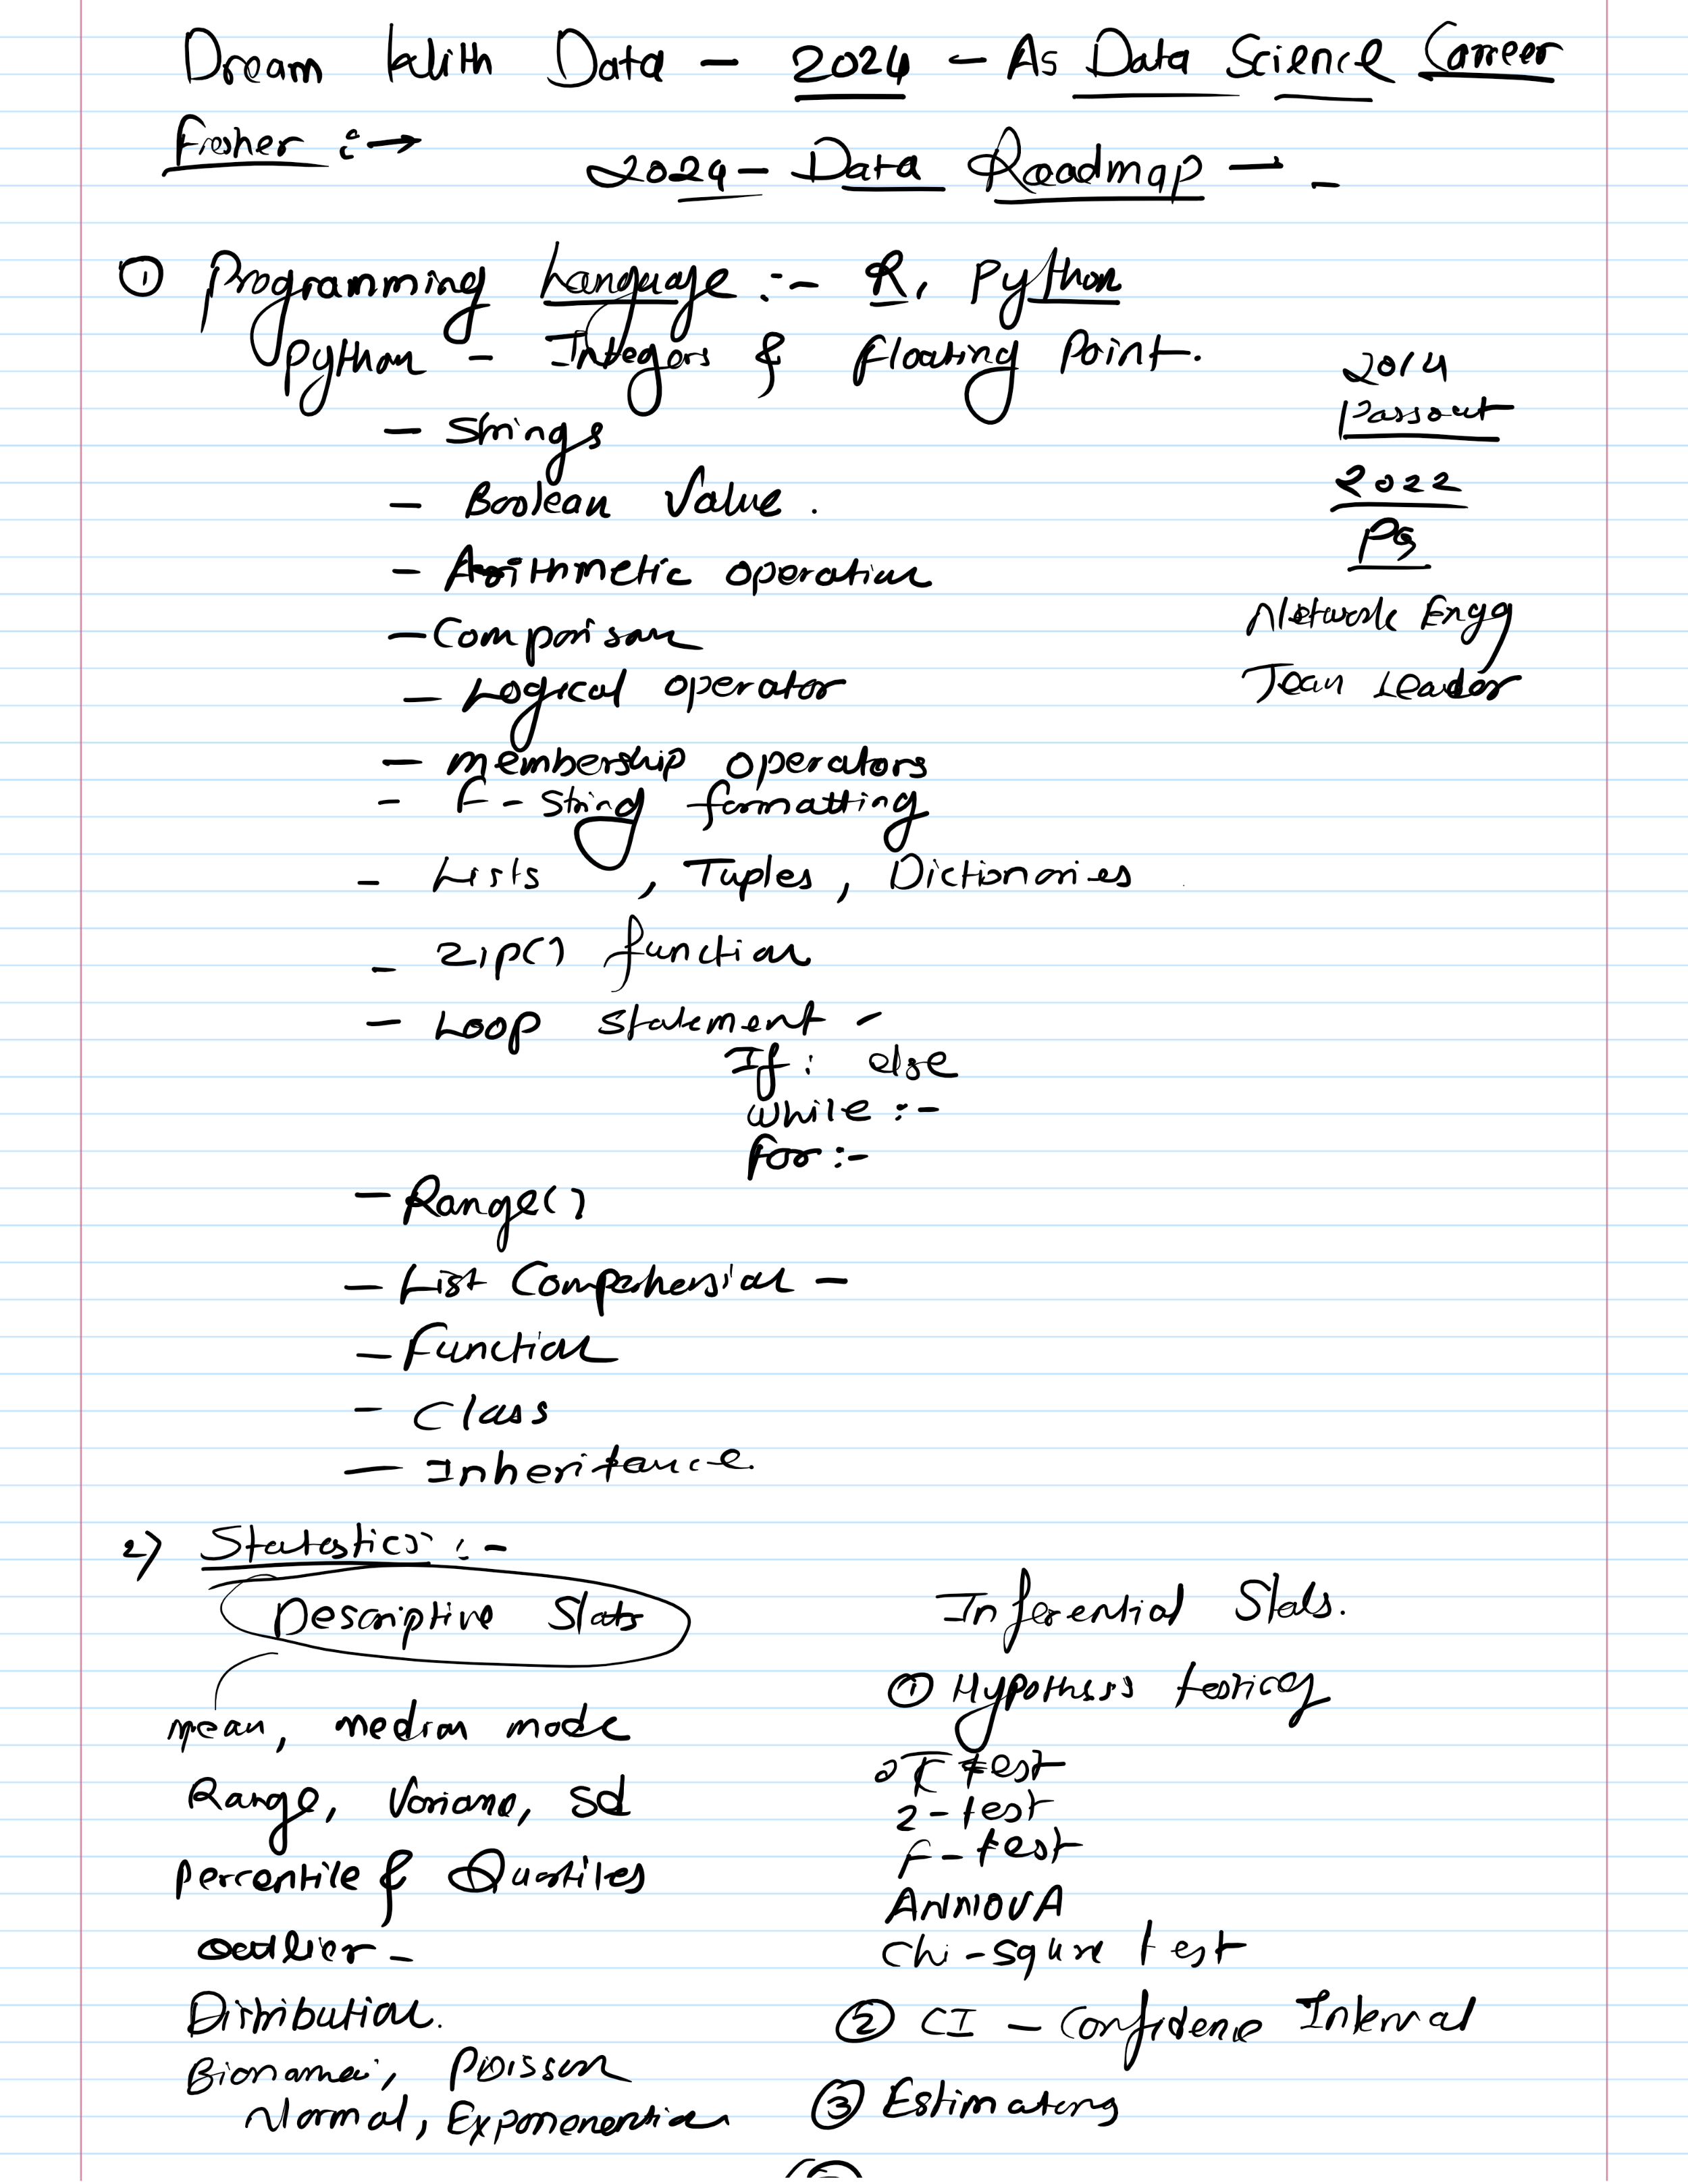 Dream With Data - 2024 - As Data Science Carreer
Fresher :→
2024 - Data Roadmap - -
① Programming Language :- R, Python
Python - Integors & Floating Point.
- Strings
- Boolean Value .
- Arithmetic operation
- Comparison
- Logical operator
- Membership operators
- F - String formatting
- Lists , Tuples , Dictionaries
- zip() function
- Loop statement -
If : else
while :-
for :-
- Range()
- List Compehersion -
- Function
- Class
- Inheritance.
2014
Passout
2022
PG
Network Engg
Team Leader
2) Statastics :-
Descriptive Stats
mean, median mode
Range, Variance, sd
Percentile & Quartiles
outlier -
Distribution.
Poisson
Normal, Exponenential
Inferential Stats.
① Hypothesis testing
T test
Z - test
F - test
ANNOVA
Chi - squre test
② CI - Confidence Interval
③ Estimatong